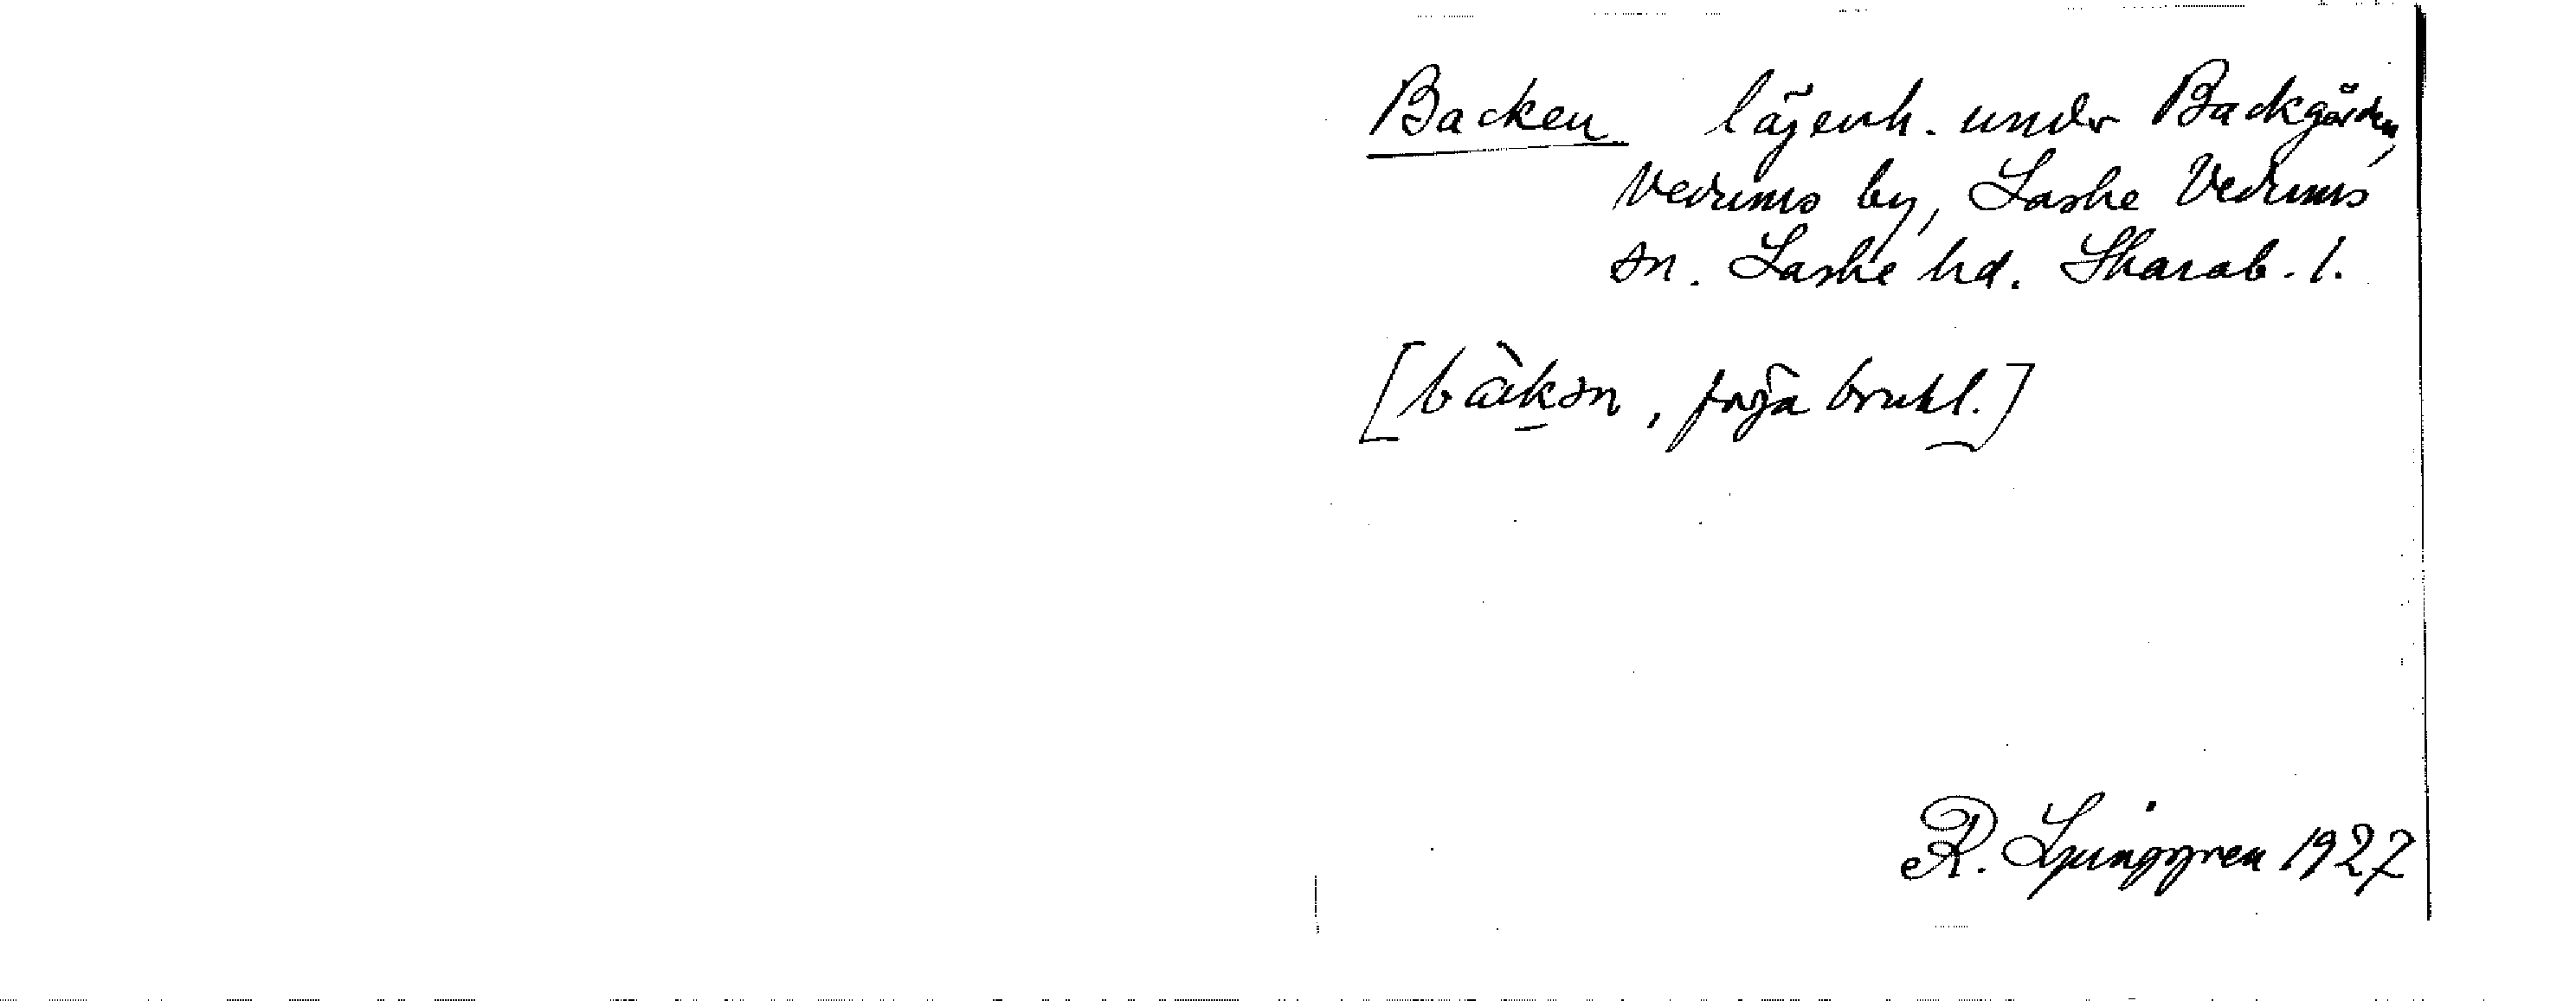 Backen lägenh. under Backgården,
Vedums by, Laske Vedums
sn. Laske hd. Skarab. l.
[bàkən, föga brukl.]
R. Ljunggren 1927